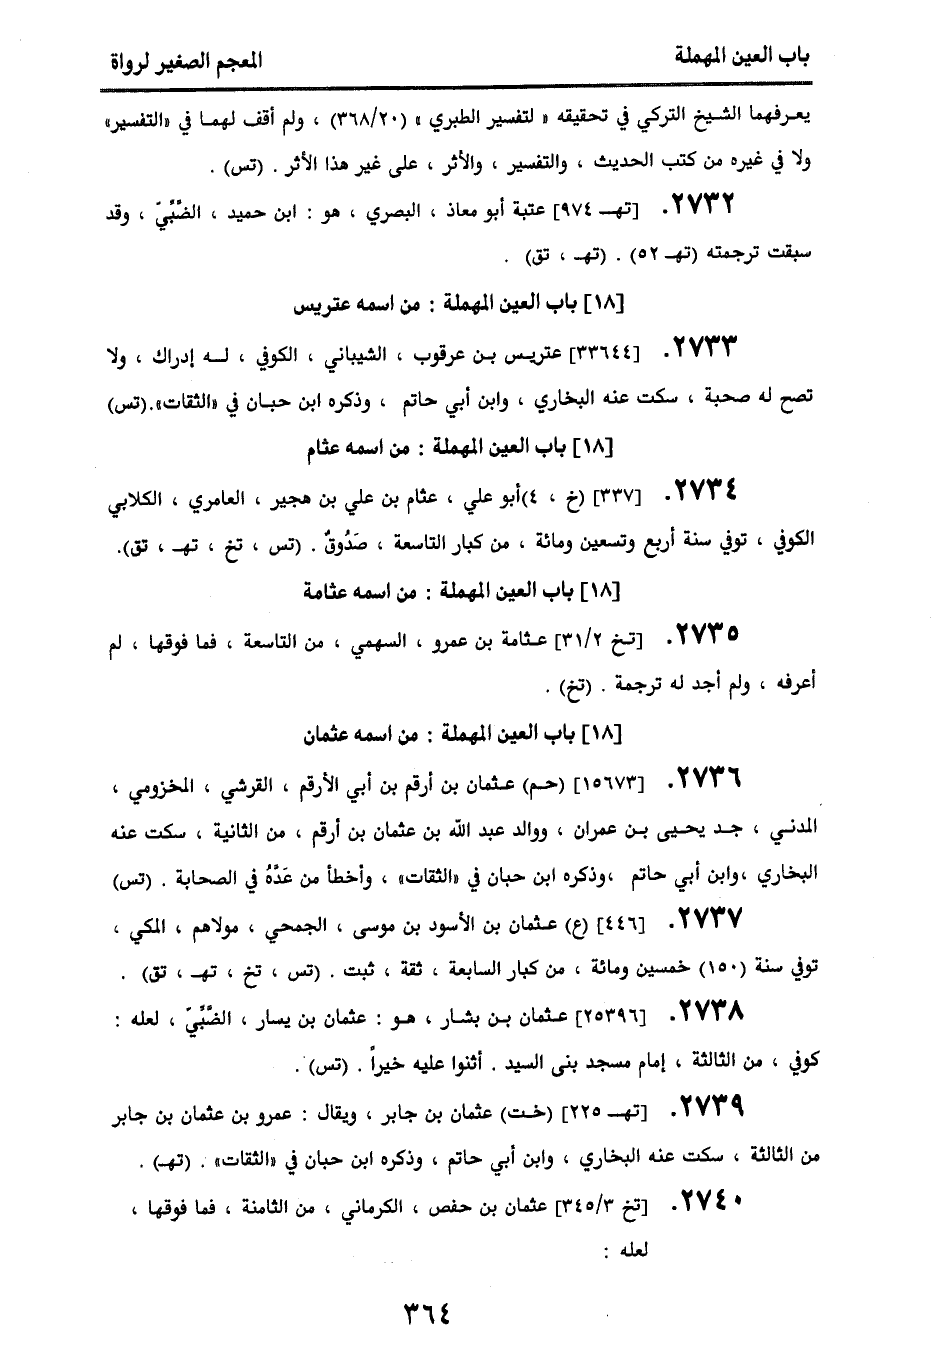 باب العين المهملة المعجم الصغير لرواة
يعرفهما الشيخ التركي في تحقيقه « لتفسير الطبري » (٣٦٨/٢٠) ، ولم أقف لهما في «التفسير»
ولا في غيره من كتب الحديث ، والتفسير ، والأثر ، على غير هذا الأثر . (تس) .
٢٧٣٢. [تهـ ٩٧٤] عتبة أبو معاذ ، البصري ، هو : ابن حميد ، الضَّبِّيّ ، وقد
سبقت ترجمته (تهـ ٥٢) . (تهـ ، تق) .
[١٨] باب العين المهملة : من اسمه عتريس
٢٧٣٣. [٣٣٦٤٤] عتريس بن عرقوب ، الشيباني ، الكوفي ، له إدراك ، ولا
تصح له صحبة ، سكت عنه البخاري ، وابن أبي حاتم ، وذكره ابن حبان في «الثقات».(تس)
[١٨] باب العين المهملة : من اسمه عثام
٢٧٣٤. [٣٣٧] (خ ، ٤)أبو علي ، عثام بن علي بن هجير ، العامري ، الكلابي
الكوفي ، توفي سنة أربع وتسعين ومائة ، من كبار التاسعة ، صَدُوقٌ . (تس ، تخ ، تهـ ، تق).
[١٨] باب العين المهملة : من اسمه عثامة
٢٧٣٥. [تخ ٣١/٢] عثامة بن عمرو ، السهمي ، من التاسعة ، فما فوقها ، لم
أعرفه ، ولم أجد له ترجمة . (تخ) .
[١٨] باب العين المهملة : من اسمه عثمان
٢٧٣٦. [١٥٦٧٣] (حم) عثمان بن أرقم بن أبي الأرقم ، القرشي ، المخزومي ،
المدني ، جد يحيى بن عمران ، ووالد عبد الله بن عثمان بن أرقم ، من الثانية ، سكت عنه
البخاري ،وابن أبي حاتم ،وذكره ابن حبان في «الثقات» ، وأخطأ من عَدَّهُ في الصحابة . (تس)
٢٧٣٧. [٤٤٦] (ع) عثمان بن الأسود بن موسى ، الجمحي ، مولاهم ، المكي ،
توفي سنة (١٥٠) خمسين ومائة ، من كبار السابعة ، ثقة ، ثبت . (تس ، تخ ، تهـ ، تق) .
٢٧٣٨. [٢٥٣٩٦] عثمان بن بشار ، هو : عثمان بن يسار ، الضَّبِّيّ ، لعله :
كوفي ، من الثالثة ، إمام مسجد بنى السيد . أثنوا عليه خيراً . (تس) .
٢٧٣٩. [تهـ ٢٢٥] (خت) عثمان بن جابر ، ويقال : عمرو بن عثمان بن جابر
من الثالثة ، سكت عنه البخاري ، وابن أبي حاتم ، وذكره ابن حبان في «الثقات» . (تهـ) .
٢٧٤٠. [تخ ٣٤٥/٣] عثمان بن حفص ، الكرماني ، من الثامنة ، فما فوقها ،
لعله :
٣٦٤